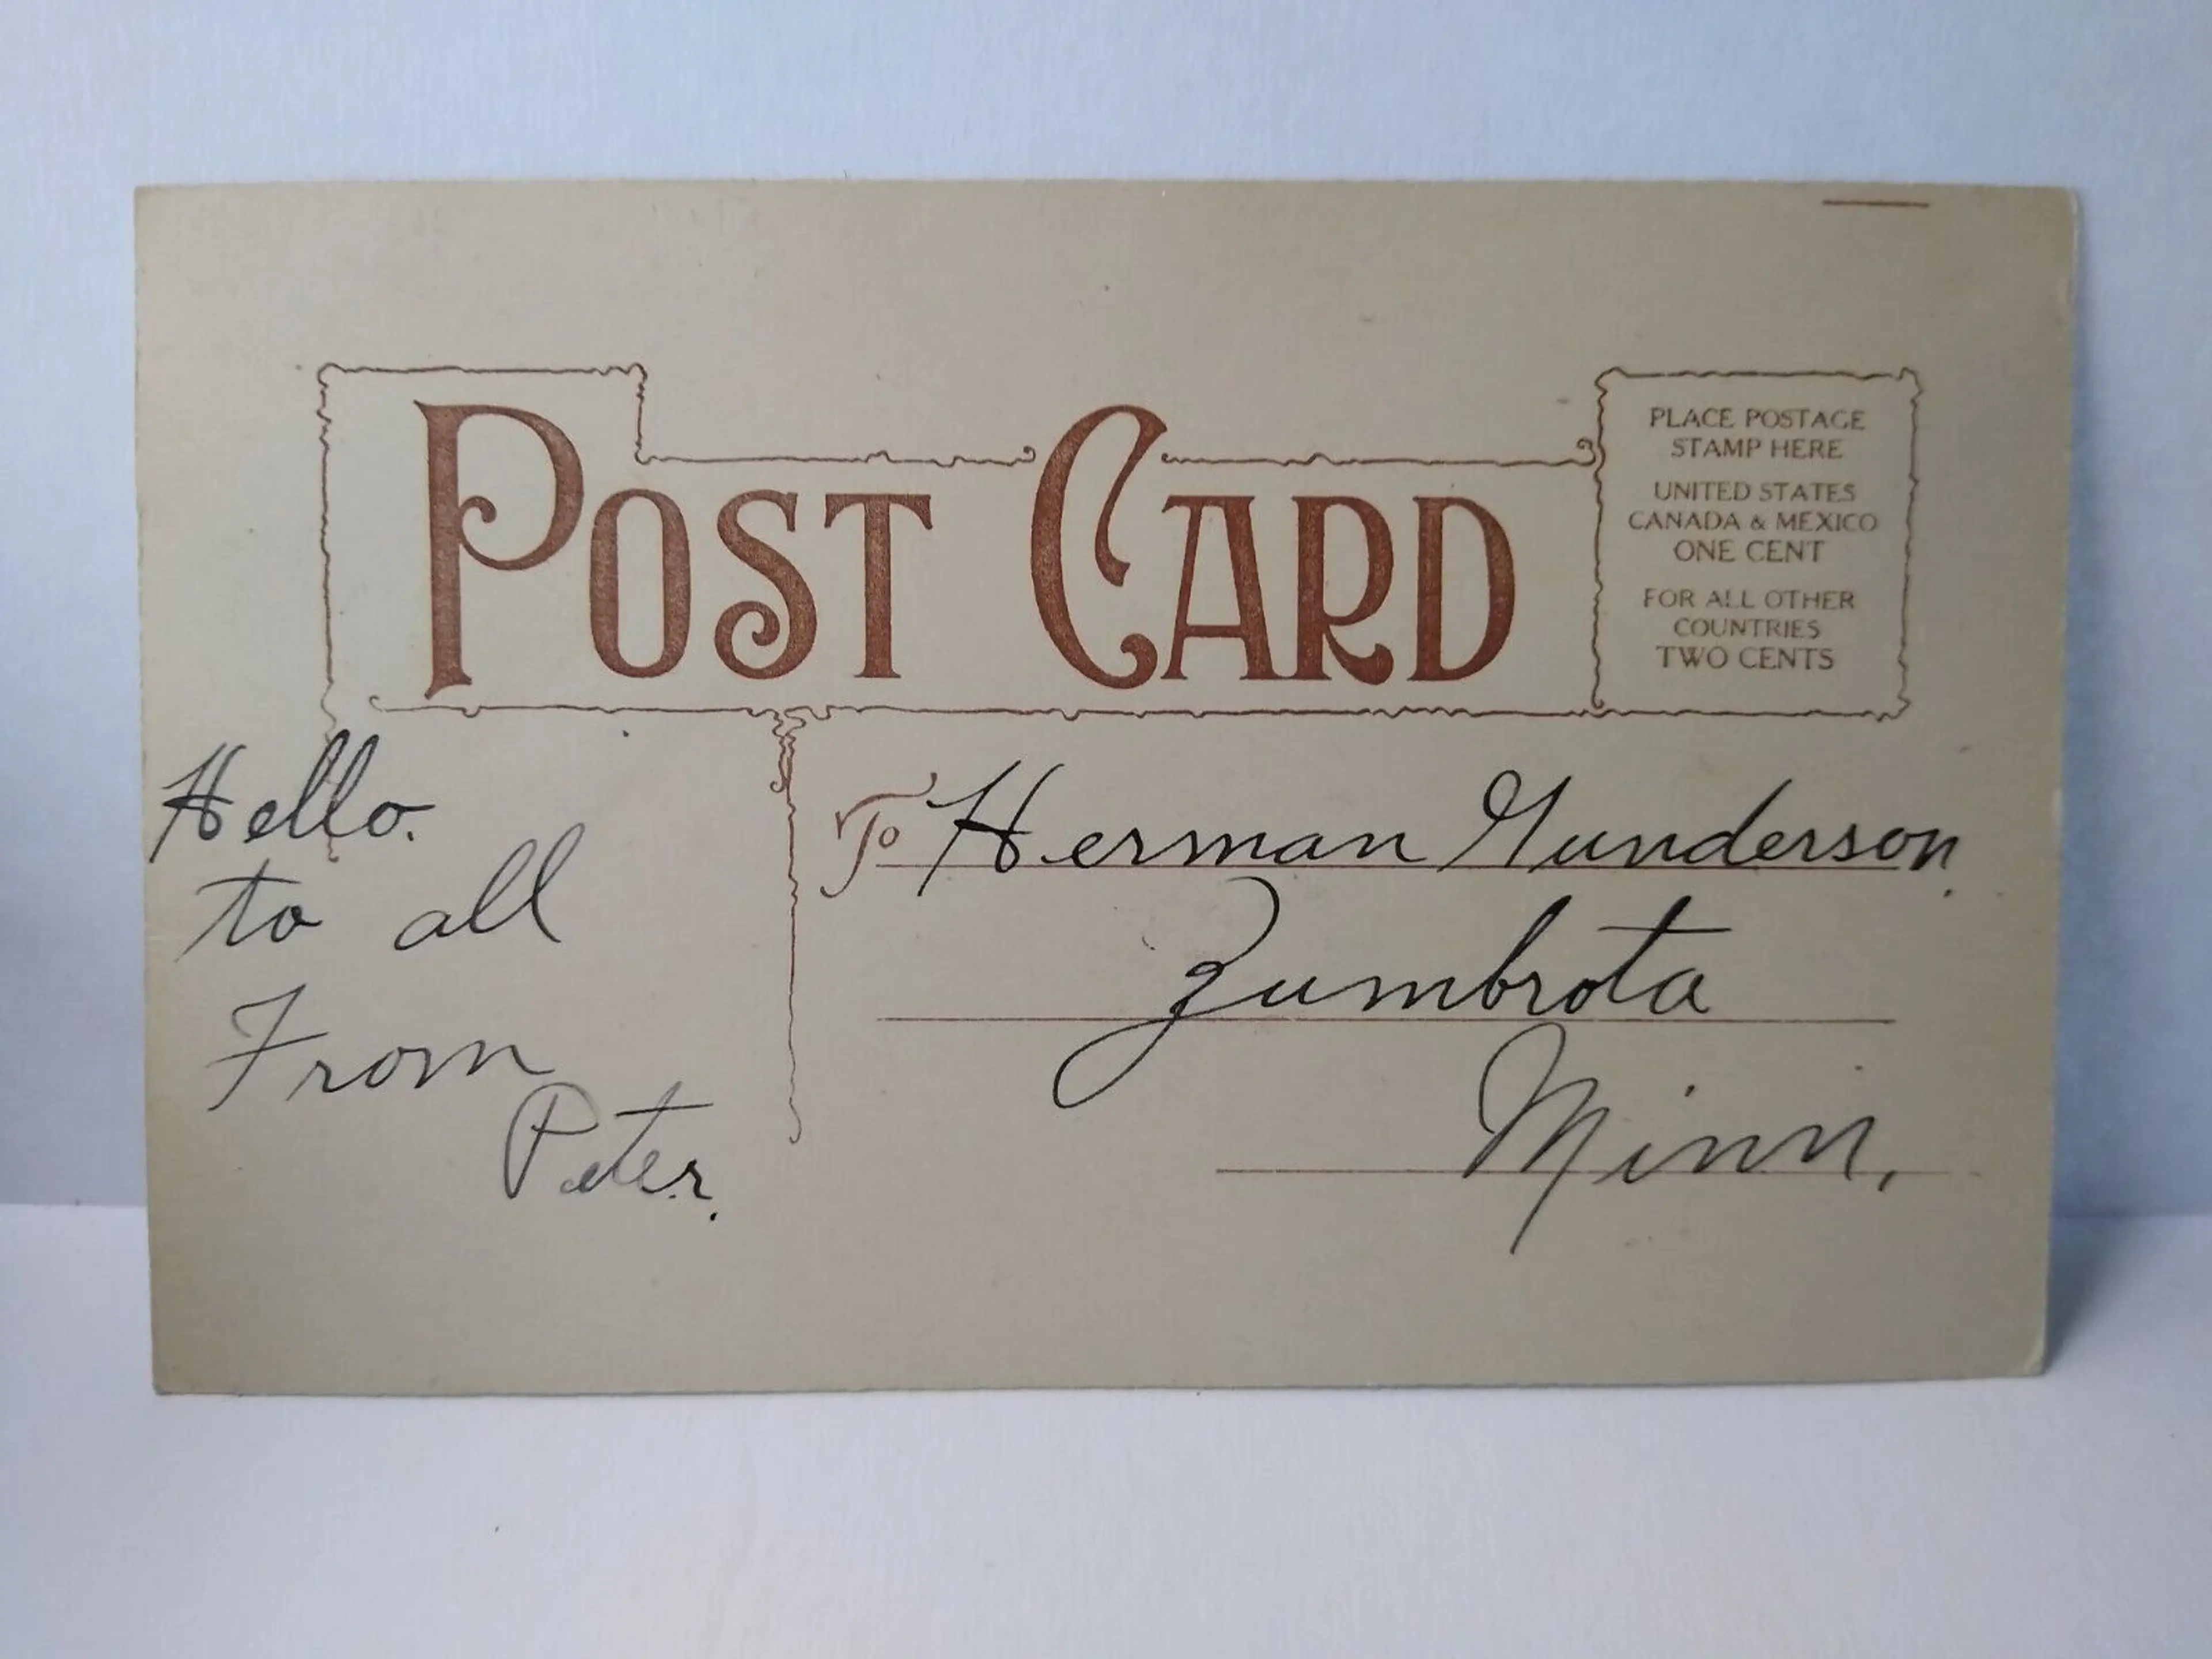 POST CARD
PLACE POSTAGE
STAMP HERE
UNITED STATES
CANADA & MEXICO
ONE CENT
FOR ALL OTHER
COUNTRIES
TWO CENTS
Hello.
to all
From
Peter.
To Herman Gunderson.
Zumbrota
Minn,